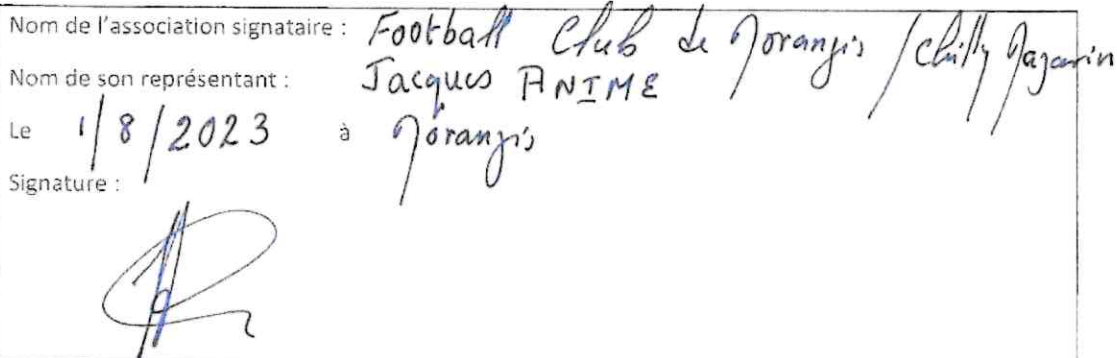 Nom de l'association signataire : Football Club de Morangis / Chilly Mazarin
Nom de son représentant : Jacques ANIME
Le 1/8/2023 à Morangis
Signature :